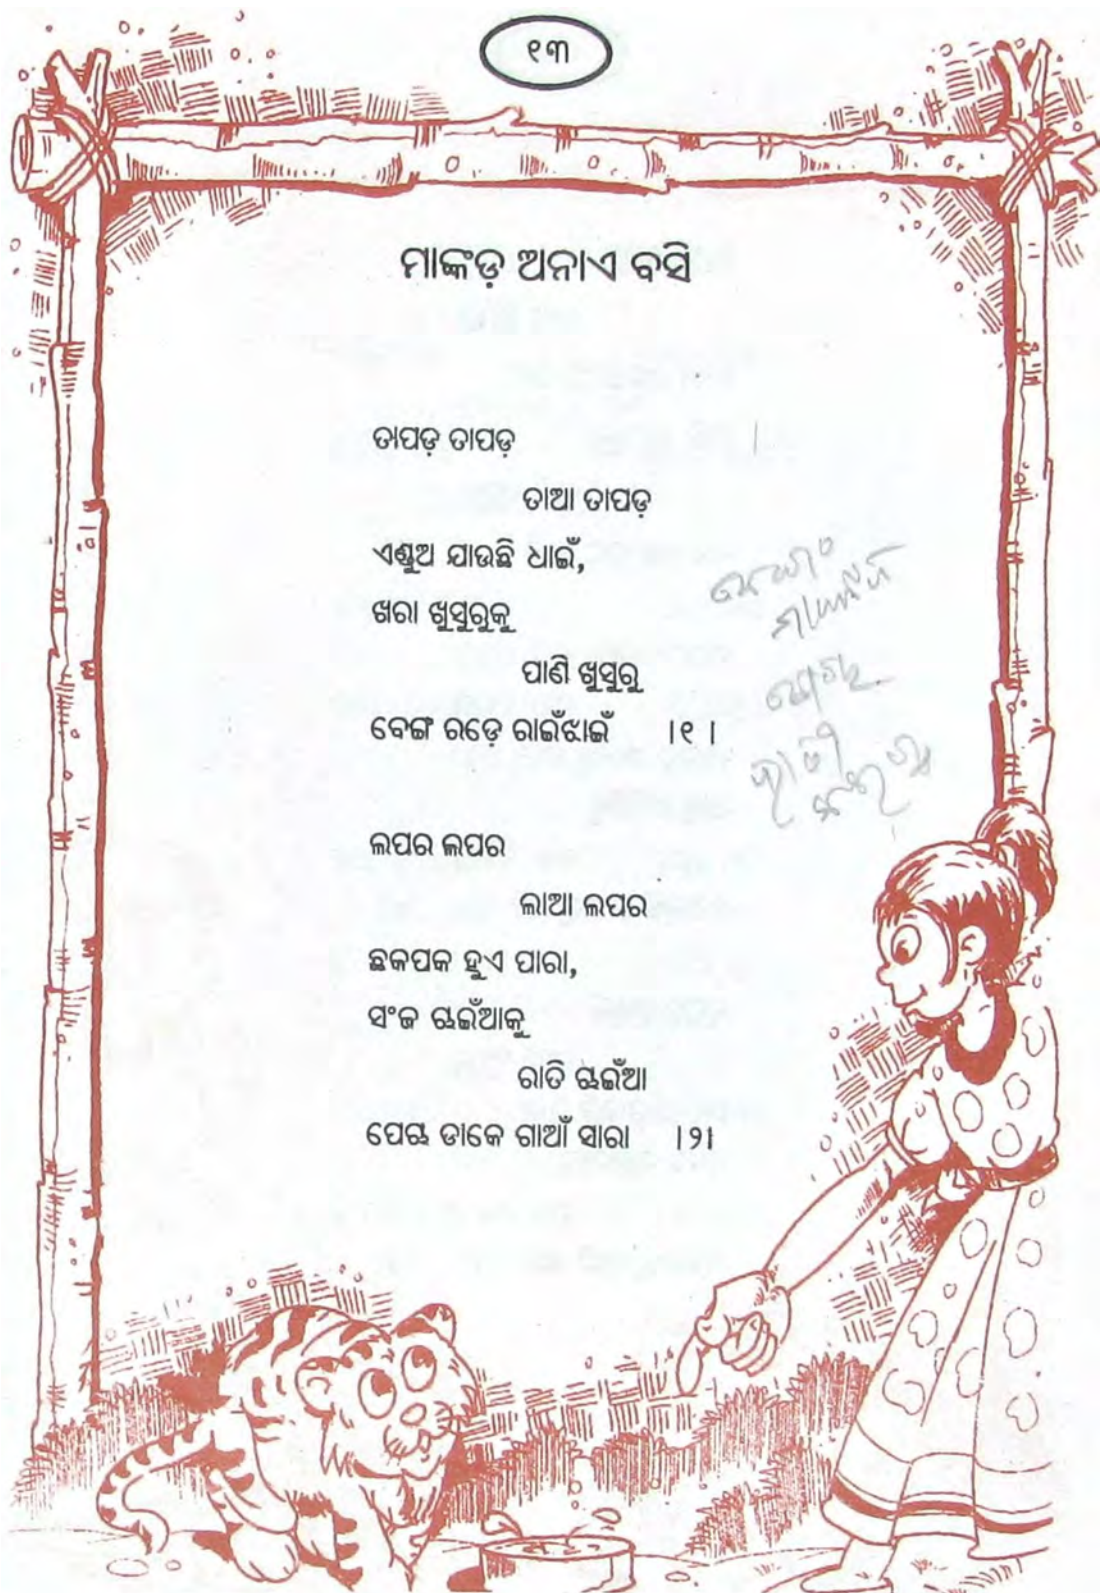 ୧୩
ମାଙ୍କଡ଼ ଅନାଏ ବସି
ତାପଡ଼ ତାପଡ଼
ତାଆ ତାପଡ଼
ଏଣ୍ଡୁଅ ଯାଉଛି ଧାଇଁ,
ଖରା ଖୁସୁରୁକୁ
ପାଣି ଖୁସୁରୁ
ବେଙ୍ଗ ରଡ଼େ ରାଇଁଝାଇଁ ।୧ ।
ଲପର ଲପର
ଲାଆ ଲପର
ଛକପକ ହୁଏ ପାରା,
ସଂଜ ଝଇଁଆକୁ
ରାତି ଝଇଁଆ
ପେଚା ଡାକେ ଗାଆଁ ସାରା ।୨।